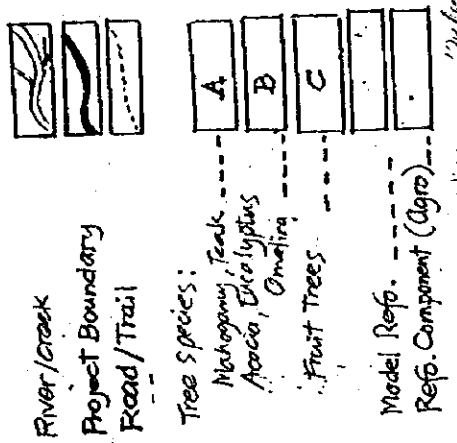 River/creek
Project Boundary
Road/Trail
Tree species:
Mahogany, Teak ---- A
Acacia, Eucalyptus
Gmelina ---- B
Fruit Trees ---- C
Model Refo. -----
Refo. Component (Agro)---